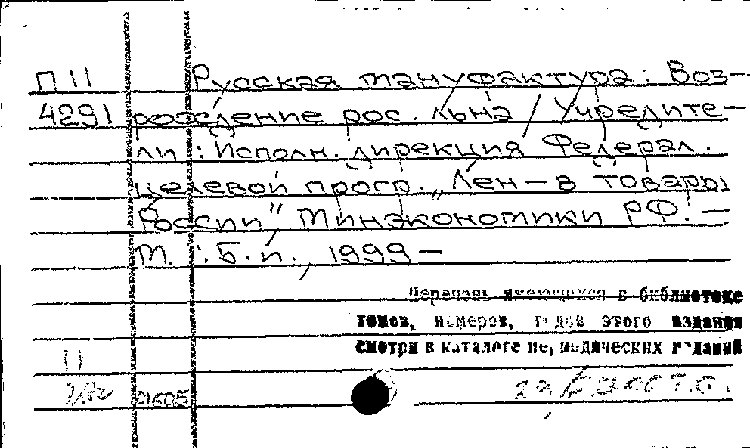 П 11 Русская мануфактура: Воз-
4291 рождение рос. льна / Учредите-
ли: Исполн. дирекция Федерал.
целевой прогр. „Лен – в товары
России", Минэкономики РФ. –
М.: Б.и., 1999 –
Перечень имеющихся в библиотеке
томов, номеров, годов этого издания
смотри в каталоге периодических изданий
11